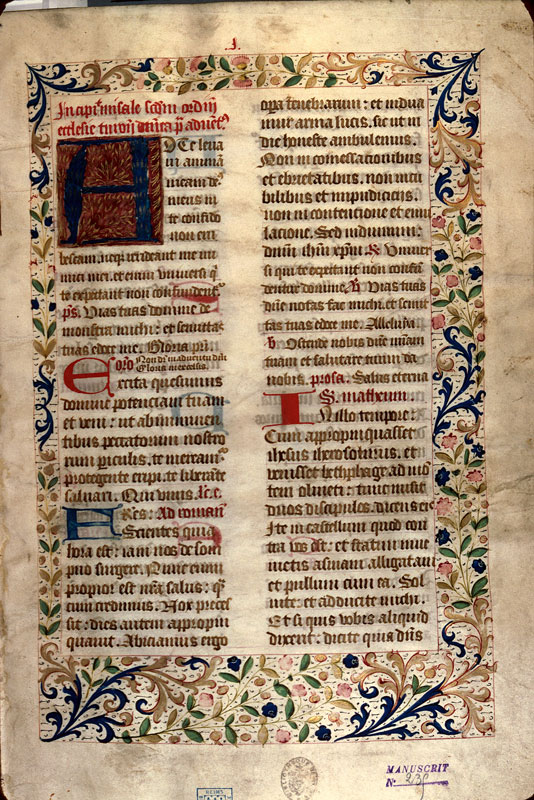 .I.
Incipit missale scdm ordinē
ecclesie
AD te leua
ui animā
meam de⁹
meus in
te confido
non eru
bescam. neq; irrideant me ini
mici mei. et enim vniuersi q̄
te expectant non confundent̄.
p̄s. Vias tuas domine de
monstra michi: et semitas
tuas edoce me. Gloria pr̄i.
Oro Non dr̄ in aduentu dn̄i
Gloria in excelsis.
Excita quesumus
domine potenciam tuam
et veni: ut ab iminen
tibus peccatorum nostro
rum piculis. te meream̄
protegente eripi. te liberāte
saluari. Qui viuis. &c.
Ad roman̄
FRes: Scientes quia
hora est: iam nos de som
pno surgere. Nunc enim
propior est nr̄a salus: q̄
cum credimus. Nox preces
sit: dies autem appropin
quauit. Abiciamus ergo
opa tenebrarum: et indua
mur arma lucis. sic ut in
die honeste ambulemus.
Non in comessationibus
et ebrietatibus. non in cu
bilibus et impudiciciis.
non in contencione et emu
lacione. Sed induimini
dnm̄ ihm̄ xp̄m. R Vniuer
si qui te expectant non confū
dentur domine. V Vias tuas
dn̄e notas fac michi. et semi
tas tuas edoce me. Alleluya.
V. Ostende nobis dn̄e mīam
tuam et salutare tuum da
nobis. prosa. Salus eterna
S. matheum.
IN illo tempore:
Cum appropinquasset
ihesus iherosolimis. et
venisset bethphage ad mō
tem oliueti: tunc misit
duos discipulos. dicens eis
Ite in castellum quod con
tra vos est: et statim inue
nietis asinam alligatam
et pullum cum ea. Sol
uite: et adducite michi.
Et si quis vobis aliquid
dixerit: dicite quia dn̄s
MANUSCRIT
N° 23
REIMS